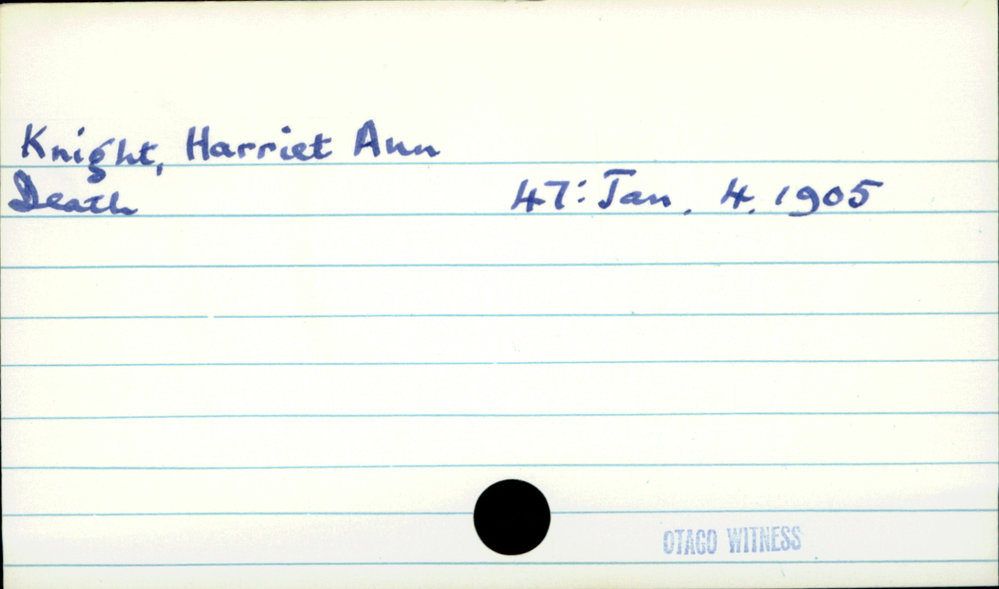 Knight, Harriet Ann
Death 47: Jan. 4. 1905
OTAGO WITNESS